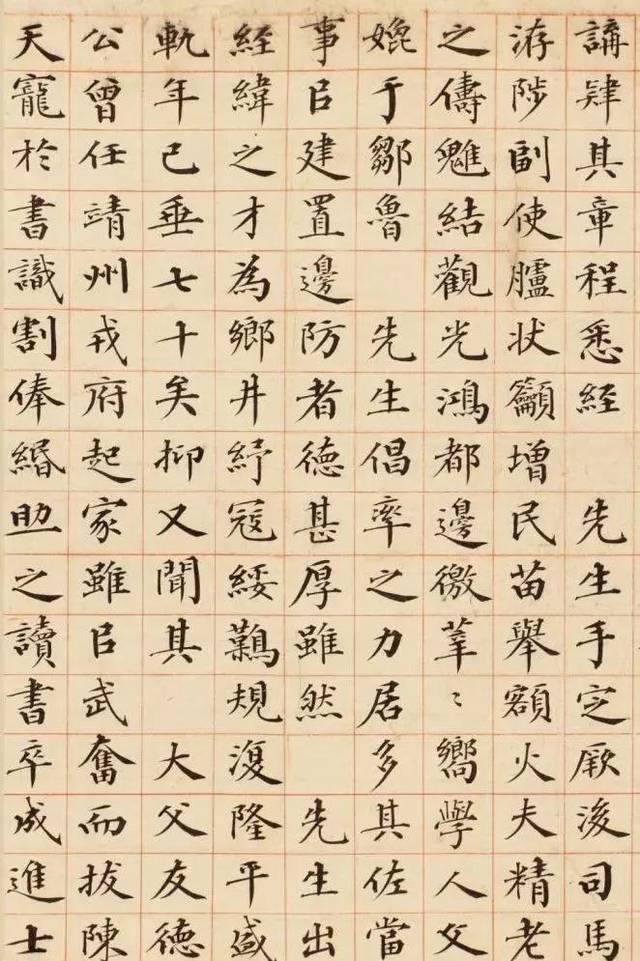 講肄其章程悉經 先生手定厥後司馬
游陟副使臚状籲增民苗舉額火夫精老
之儔魋結觀光鴻都邊徼莘〻嚮學人文
媲于鄒魯 先生倡率之力居多其佐當
事㠯建置邊防者德甚厚雖然 先生出
經緯之才為鄉井紓冦綏難規復隆平盛
軌年已垂七十矣抑又聞其 大父友德
公曾任靖州戎府起家雖㠯武奮而拔陳
天寵於書識割俸緡助之讀書卒成進士